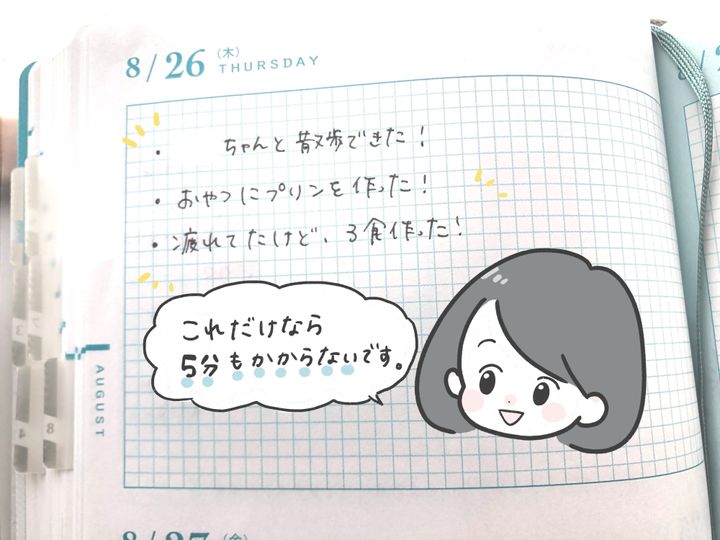 8/26(木)
THURSDAY
・ ちゃんと散歩できた!
・おやつにプリンを作った!
・疲れてたけど、3食作った!
これだけなら
5分もかからないです。
AUGUST
3
8
4
8/27(金)